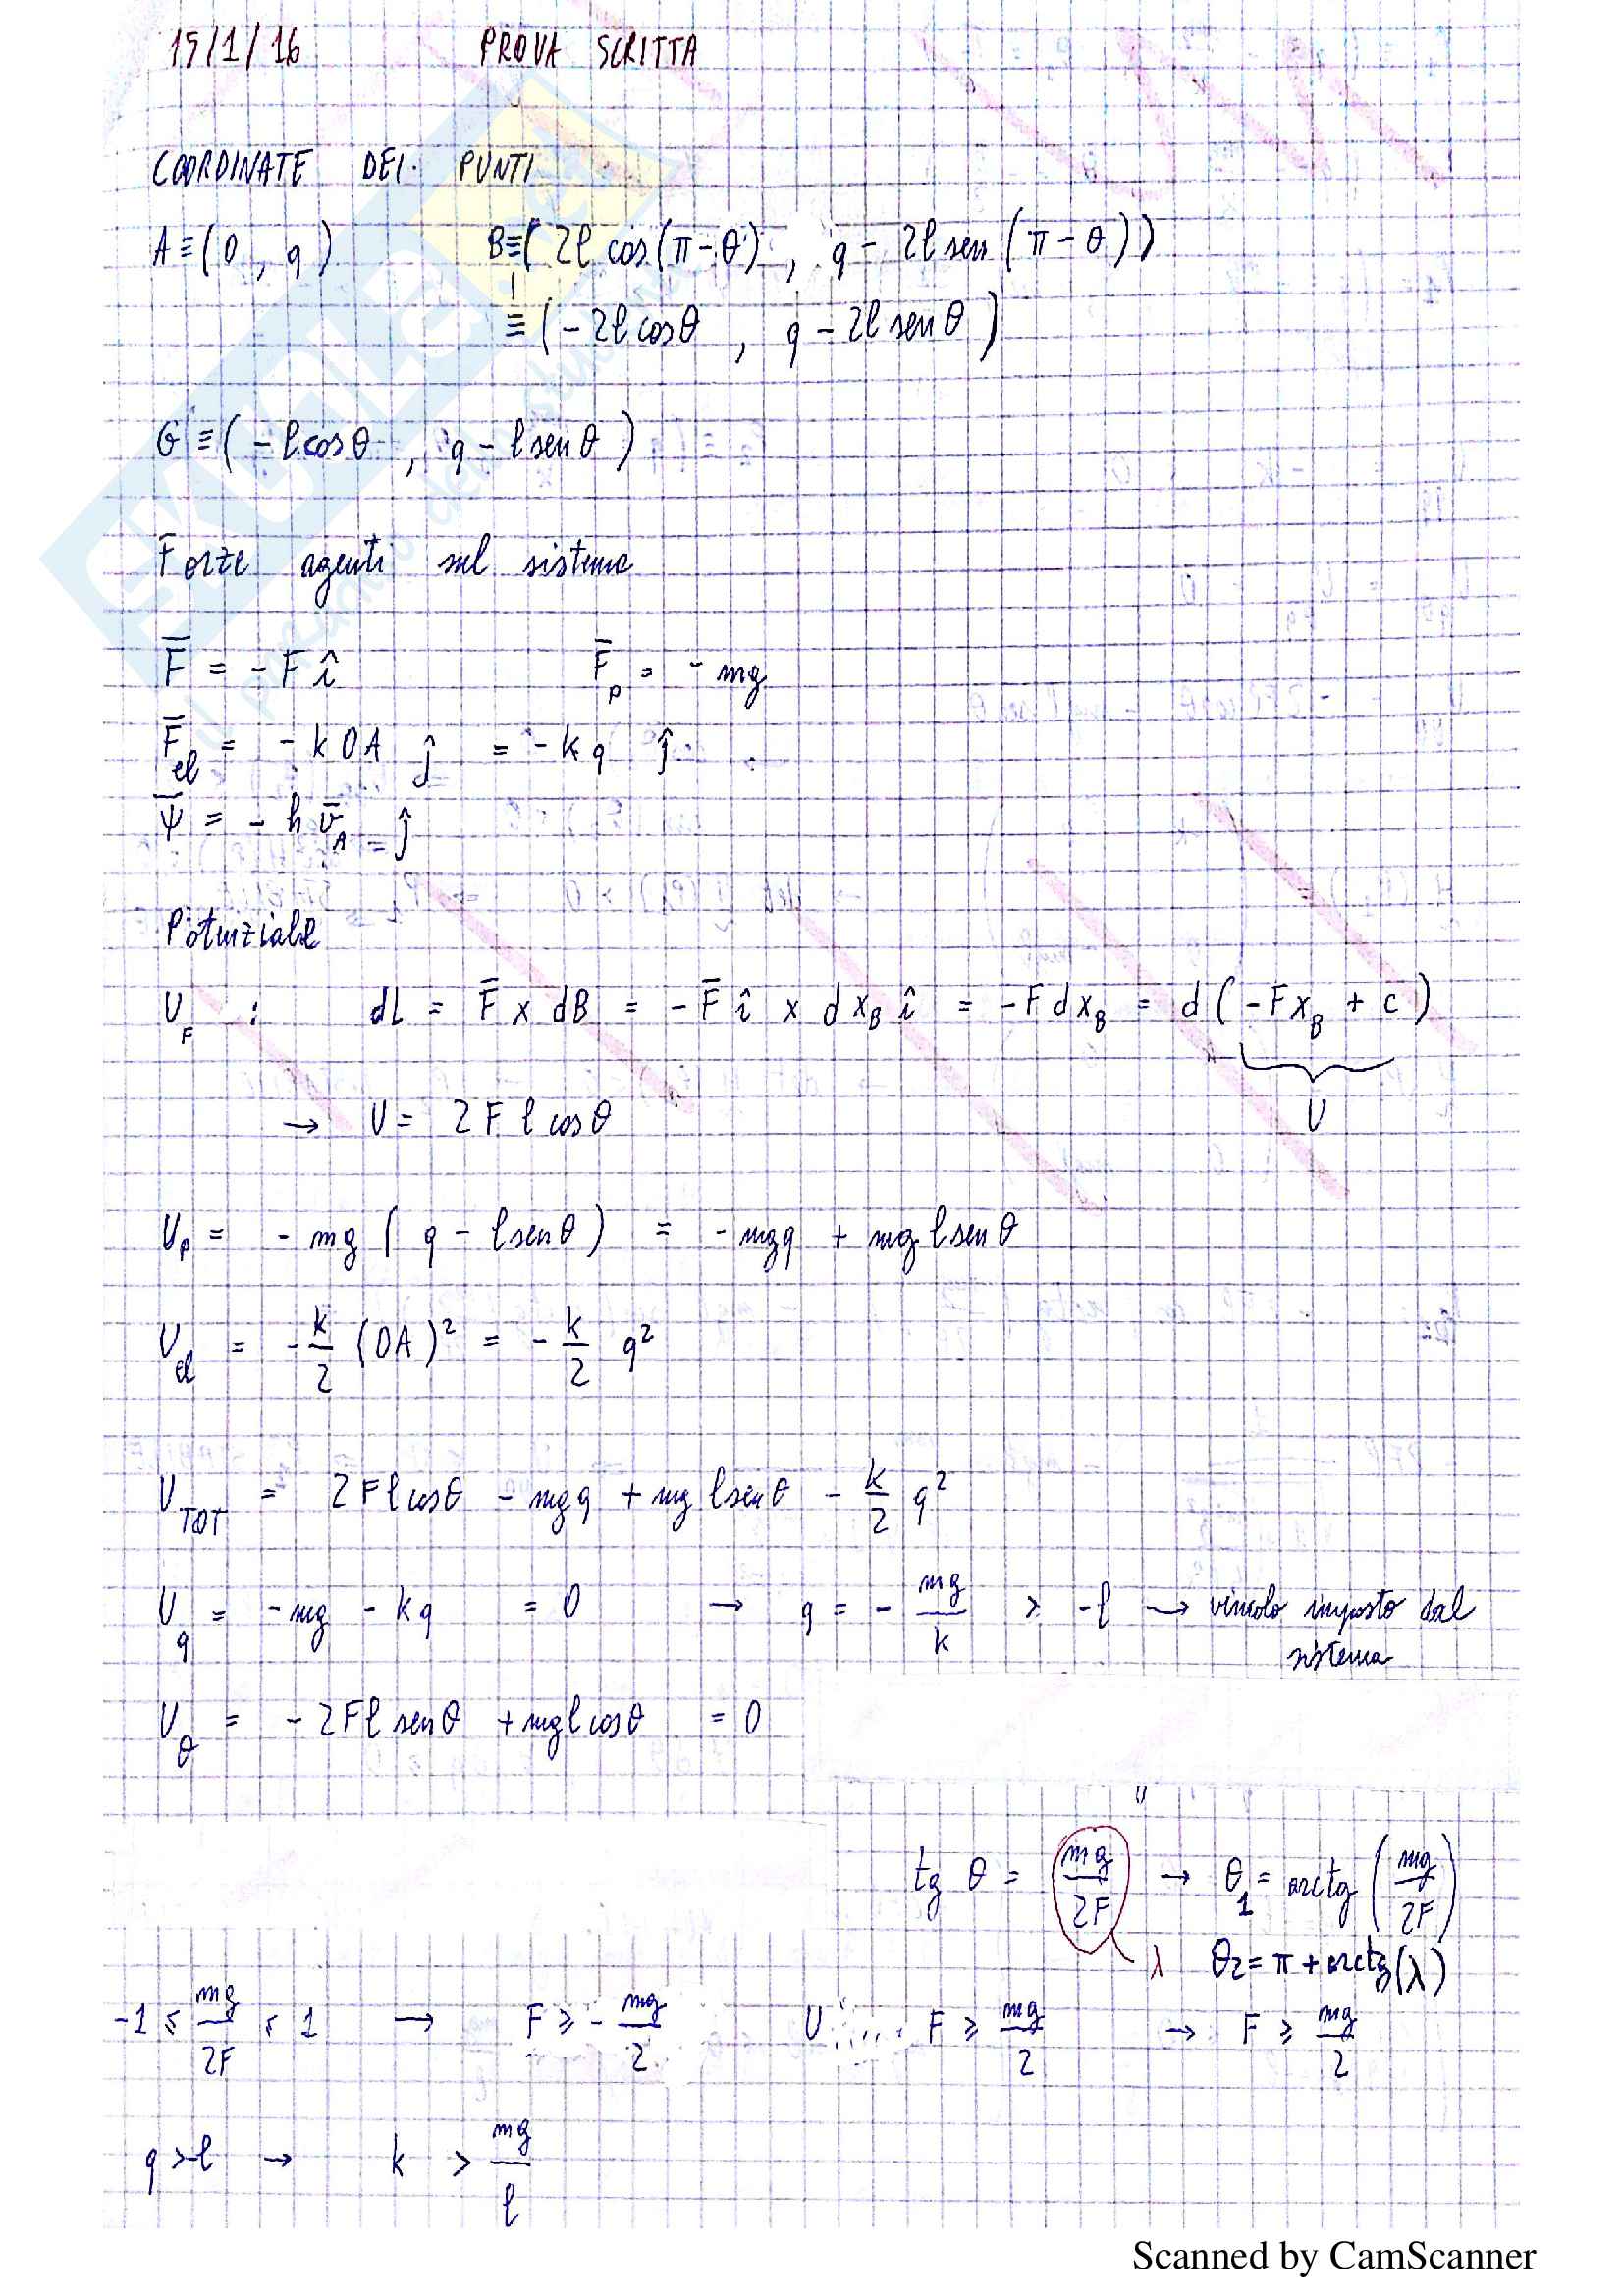 15/1/16 PROVA SCRITTA
COORDINATE DEI PUNTI
A ≡ (0, q) B ≡ (2l cos(π-θ), q - 2l sen(π-θ))
≡ (-2l cosθ, q - 2l senθ)
G ≡ (-l cosθ, q - l senθ)
Forze agenti sul sistema
F̅ = - F î F̅p = - mg
F̅el = - k OA ĵ = - k q ĵ
Ψ̅ = - h v̅A = ĵ
Potenziale
U_F : dL = F̅ x dB = - F̅ î x dx_B î = -F dx_B = d(-Fx_B + c)
U
→ U = 2 F l cosθ
Up = - mg (q - l senθ) = - mgq + mg l senθ
Uel = - k/2 (OA)² = - k/2 q²
U_TOT = 2Fl cosθ - mgq + mg l senθ - k/2 q²
Uq = - mg - kq = 0 → q = - mg/k > -l → vincolo imposto dal
sistema
Uθ = - 2Fl senθ + mgl cosθ = 0
tg θ = mg/2F → θ1 = arctg (mg/2F)
λ θ2 = π + arctg(λ)
-1 ≤ mg/2F ≤ 1 → F ≥ - mg/2 U F ≥ mg/2 → F ≥ mg/2
q > -l → k > mg/l
Scanned by CamScanner